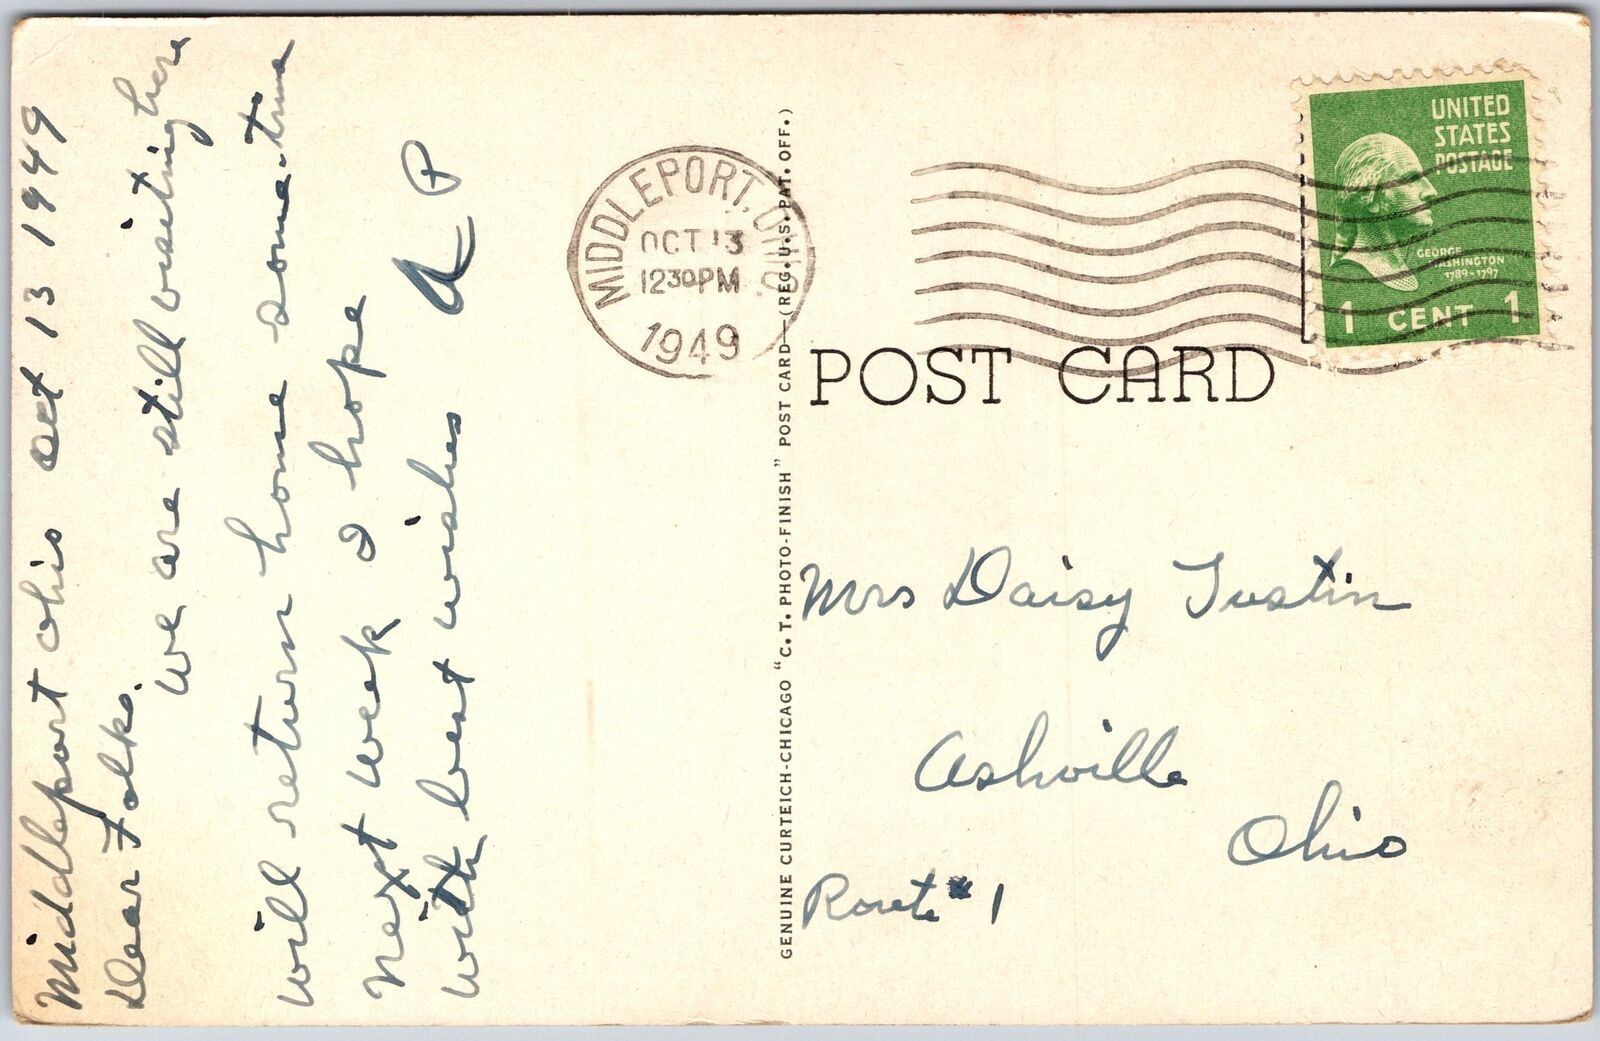 Middleport Ohio Oct 13 1949
Dear Folks.
We are still visiting here
will return home some-time
next week I hope
with best wishes A P
MIDDLEPORT, OHIO.
OCT 13
12 30 PM
1949
GENUINE CURTEICH-CHICAGO "C. T. PHOTO-FINISH" POST CARD—(REG. U. S. PAT. OFF.)
UNITED
STATES
POSTAGE
GEORGE
WASHINGTON
1789-1797
1 CENT 1
POST CARD
Mrs Daisy Tustin
Ashville
Ohio
Route #1